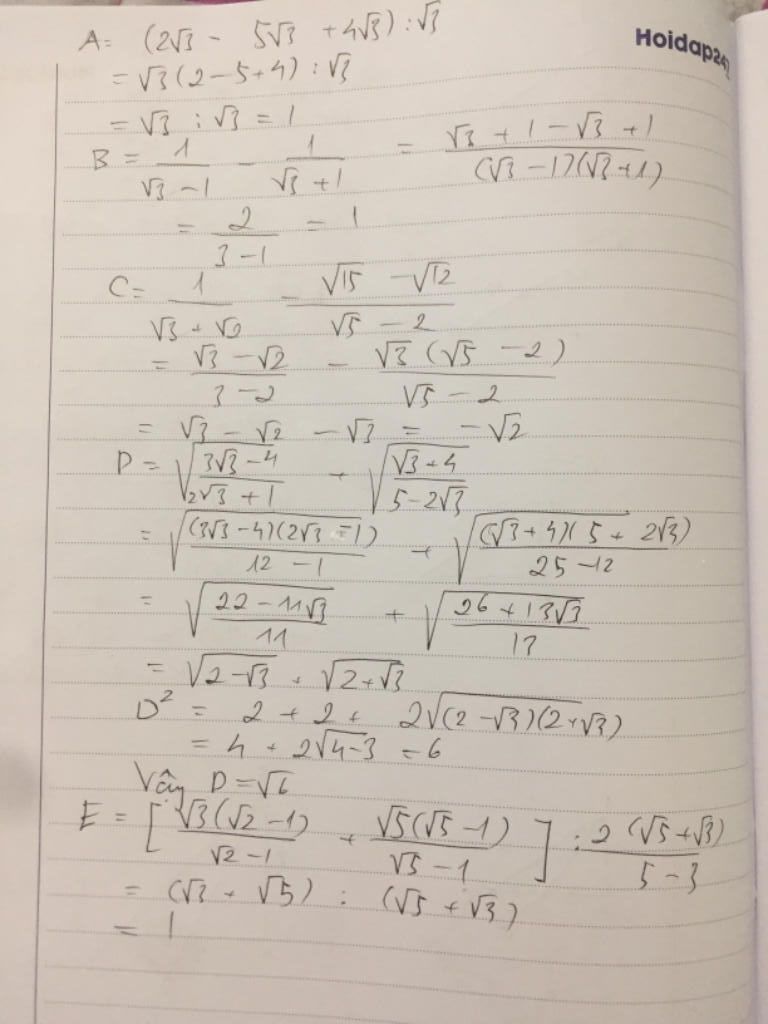 Hoidap247
A = (2√3 - 5√3 + 4√3) : √3
= √3 (2 - 5 + 4) : √3
= √3 : √3 = 1
B = 1/(√3 - 1) - 1/(√3 + 1) = (√3 + 1 - √3 + 1)/((√3 - 1)(√3 + 1))
= 2/(3 - 1) = 1
C = 1/(√3 + √2) - (√15 - √12)/(√5 - 2)
= (√3 - √2)/(3 - 2) - (√3 (√5 - 2))/(√5 - 2)
= √3 - √2 - √3 = -√2
D = √((3√3 - 4)/(2√3 + 1)) + √((√3 + 4)/(5 - 2√3))
= √(((3√3 - 4)(2√3 - 1))/(12 - 1)) + √(((√3 + 4)(5 + 2√3))/(25 - 12))
= √((22 - 11√3)/11) + √((26 + 13√3)/13)
= √(2 - √3) + √(2 + √3)
D² = 2 + 2 + 2√((2 - √3)(2 + √3))
= 4 + 2√(4 - 3) = 6
Vậy D = √6
E = [(√3(√2 - 1))/(√2 - 1) + (√5(√5 - 1))/(√5 - 1)] : (2(√5 + √3))/(5 - 3)
= (√3 + √5) : (√5 + √3)
= 1